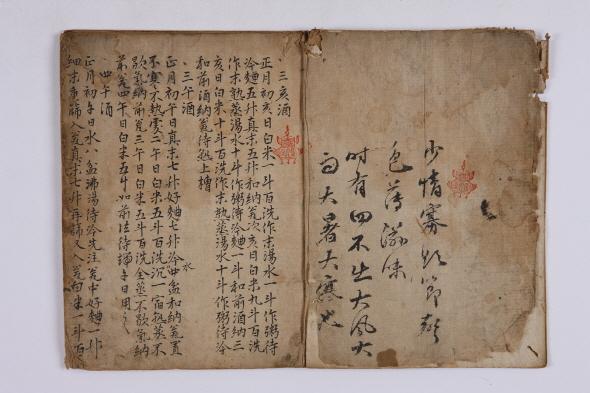 少情寡欲節聲
色薄滋味
時有四不出大風大
雨大暑大寒也
三亥酒
正月初亥日白米一斗百洗作末水一斗作粥待
冷麯五升真末五升和納瓮次亥日白米九斗百洗
作末熟蒸湯水十斗作粥待冷麯一斗和前酒納三
亥日白米十斗百洗作末熟蒸湯水十斗作粥待冷
和前酒納瓮待熟上槽
三午酒
正月初午日真末七升好麯七升冷水四盆和納瓮置
不寒不熱處二午日白米五斗百洗沉一宿熟蒸不
歇氣納前瓮三午日白米五斗百洗全蒸不歇氣納
前瓮四午日白米五斗如前法待端午日用之
四午酒
正月初午日水八盆沸湯待冷先注瓮中好麯一升
細末重篩入瓮真末七升再篩又入瓮白米一斗百